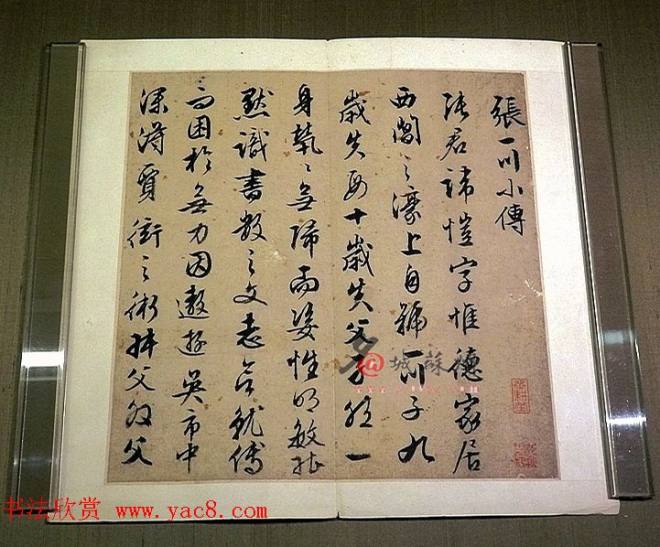 張一川小傳
張君諱愷字惟德家居
西閶之濠上自號一川子九
歲失母十歲失父孑然一
身煢〻無歸而姿性明敏
默識書數之文志欲就傅
而困於無力因遨遊吳市中
深得賈衒之術父父
@城蘇
书法欣赏 www.yac8.com